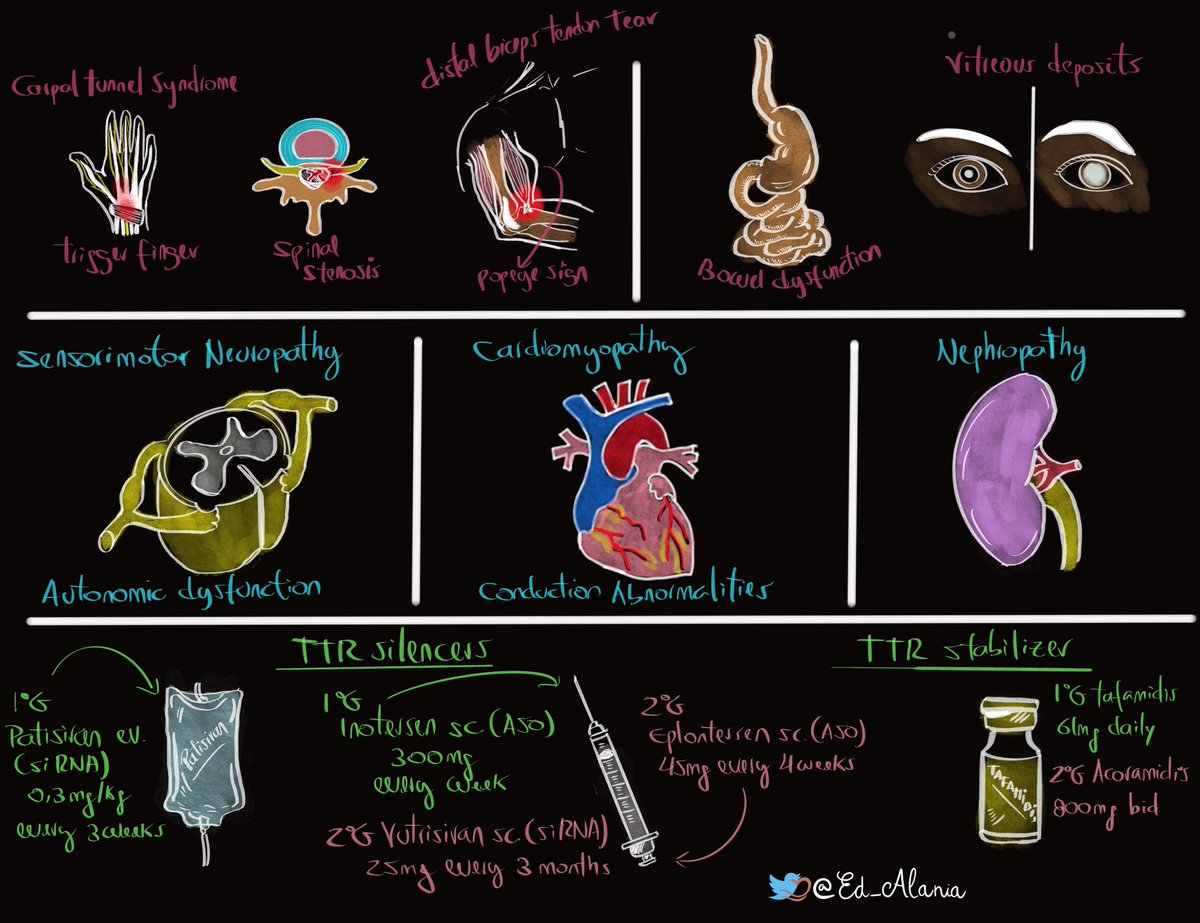 Carpal tunnel Syndrome
trigger finger
spinal
stenosis
distal biceps tendon tear
popege sign
Bowel dysfunction
vitreous deposits
Sensorimotor Neuropathy
Autonomic dysfunction
Cardiomyopathy
Conduction Abnormalities
Nephropathy
TTR silencers
1ºG
Patisiran ev.
(siRNA)
0,3mg/kg
every 3 weeks
Patisiran
1ºG
Inotersen sc (ASO)
300mg
every week
2ºG Vutrisiran sc. (siRNA)
25mg every 3 months
2ºG
Eplontersen sc. (ASO)
45mg every 4 weeks
TTR stabilizer
TAFAMIDIS
1ºG tafamidis
61mg daily
2ºG Acoramidis
800mg bid
@Ed_Alania